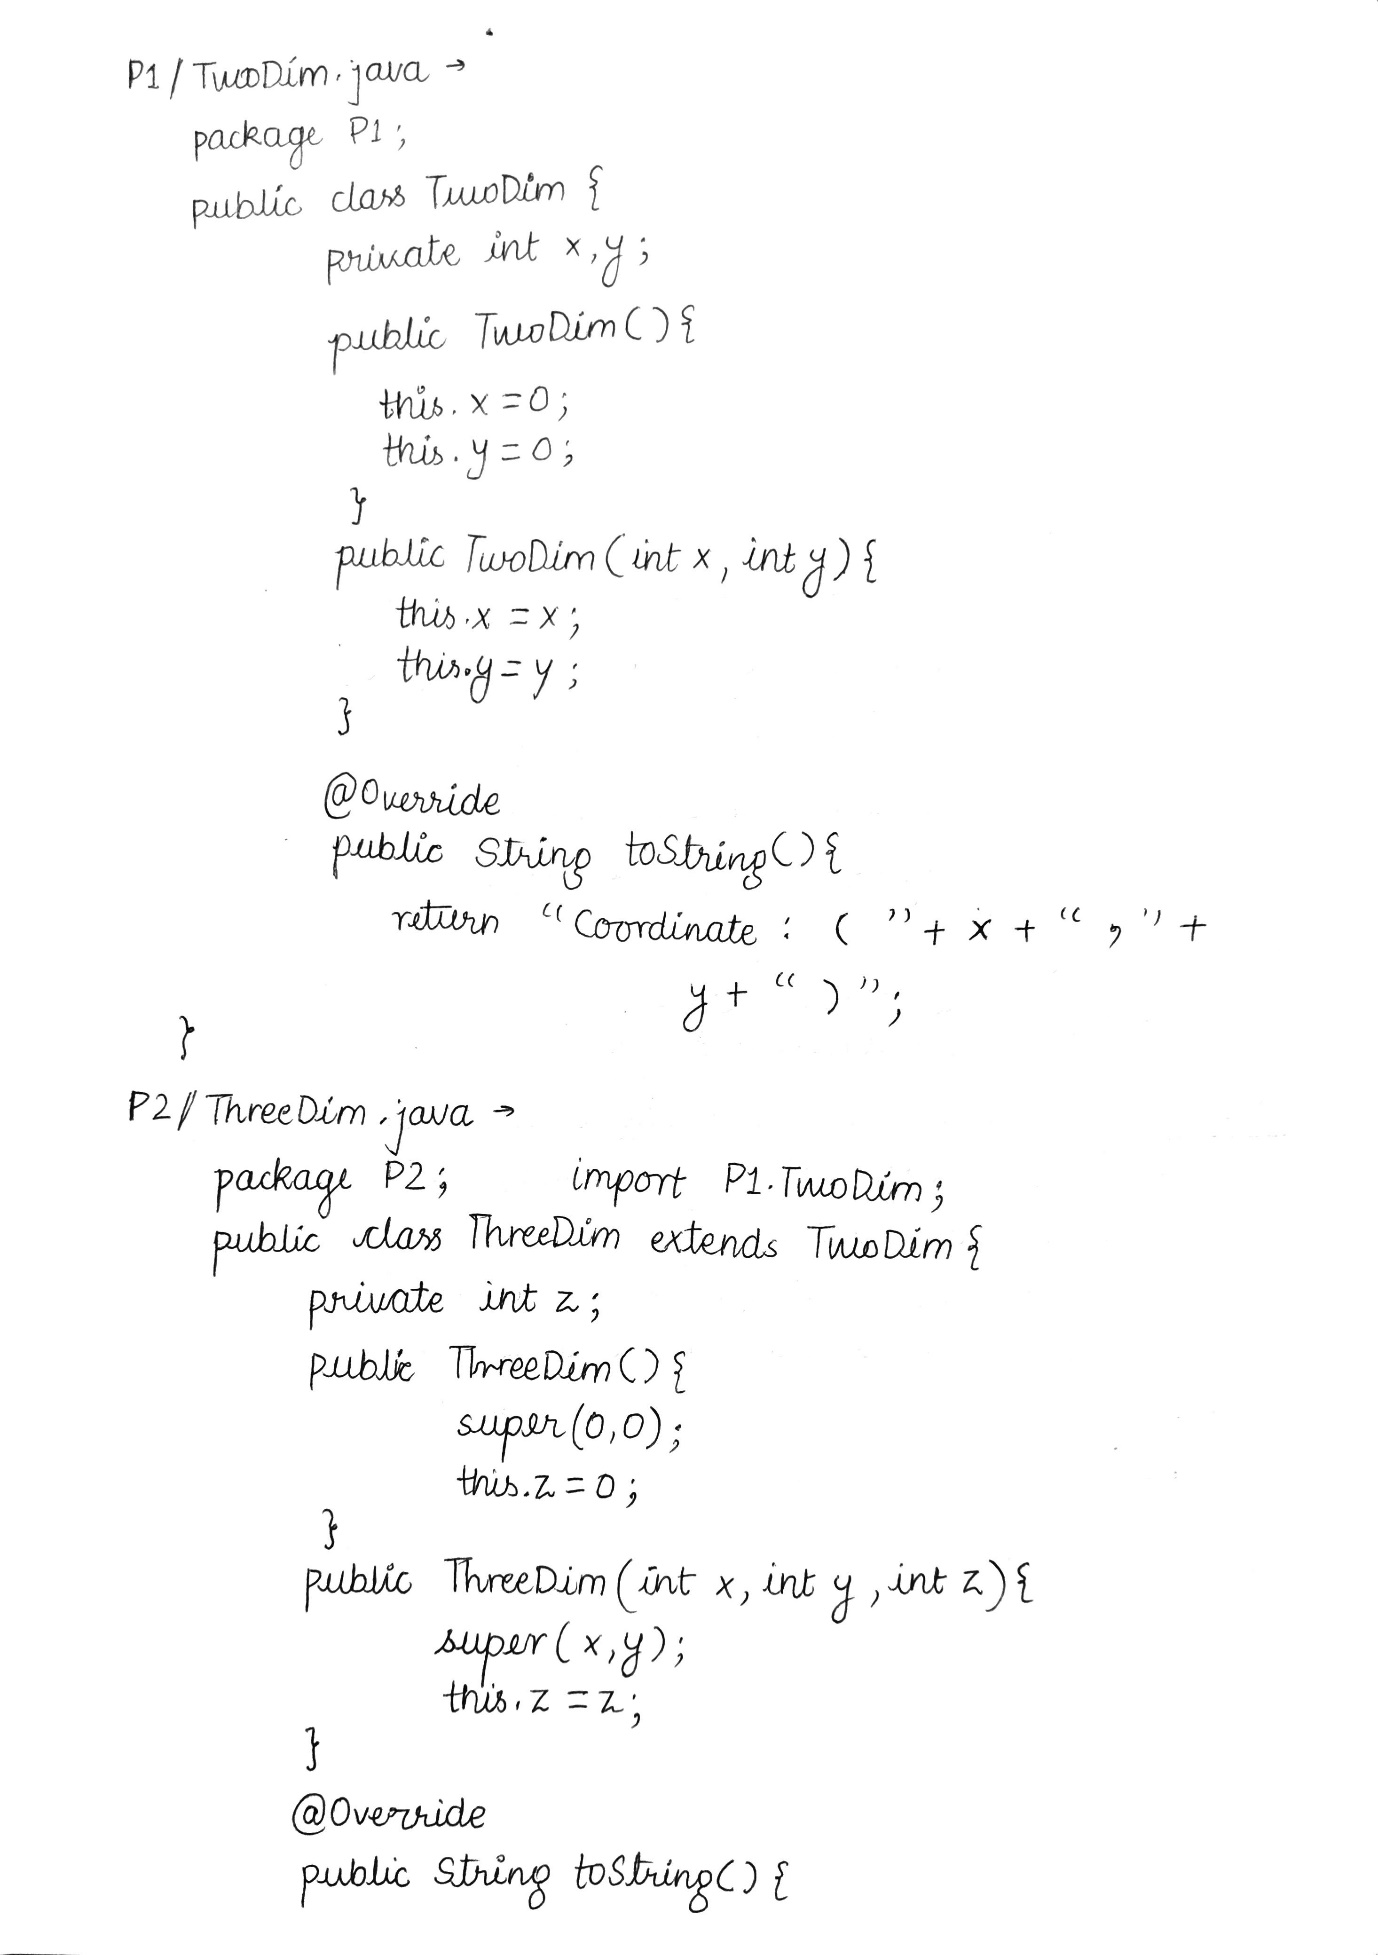 P1/TwoDim.java →
package P1;
public class TwoDim {
private int x,y;
public TwoDim(){
this.x=0;
this.y=0;
}
public TwoDim(int x, int y){
this.x = x;
this.y = y;
}
@Override
public String toString(){
return "Coordinate : ( "+ x + " , "+
y + " ) ";
}
P2//ThreeDim.java →
package P2; import P1.TwoDim;
public class ThreeDim extends TwoDim {
private int z;
public ThreeDim(){
super(0,0);
this.z=0;
}
public ThreeDim(int x, int y, int z){
super(x,y);
this.z =z;
}
@Override
public String toString(){